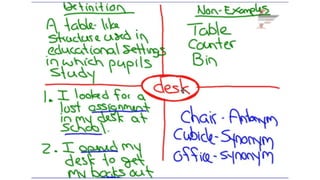 Definition
A table like
structure used in
educational settings
in which pupils
study
Non-Examples
Table
Counter
Bin
desk
1. I looked for a
lost assignment
in my desk at
school.
2. I opened my
desk to get
my books out
Chair-Antonym
Cubicle-Synonym
Office-Synonym